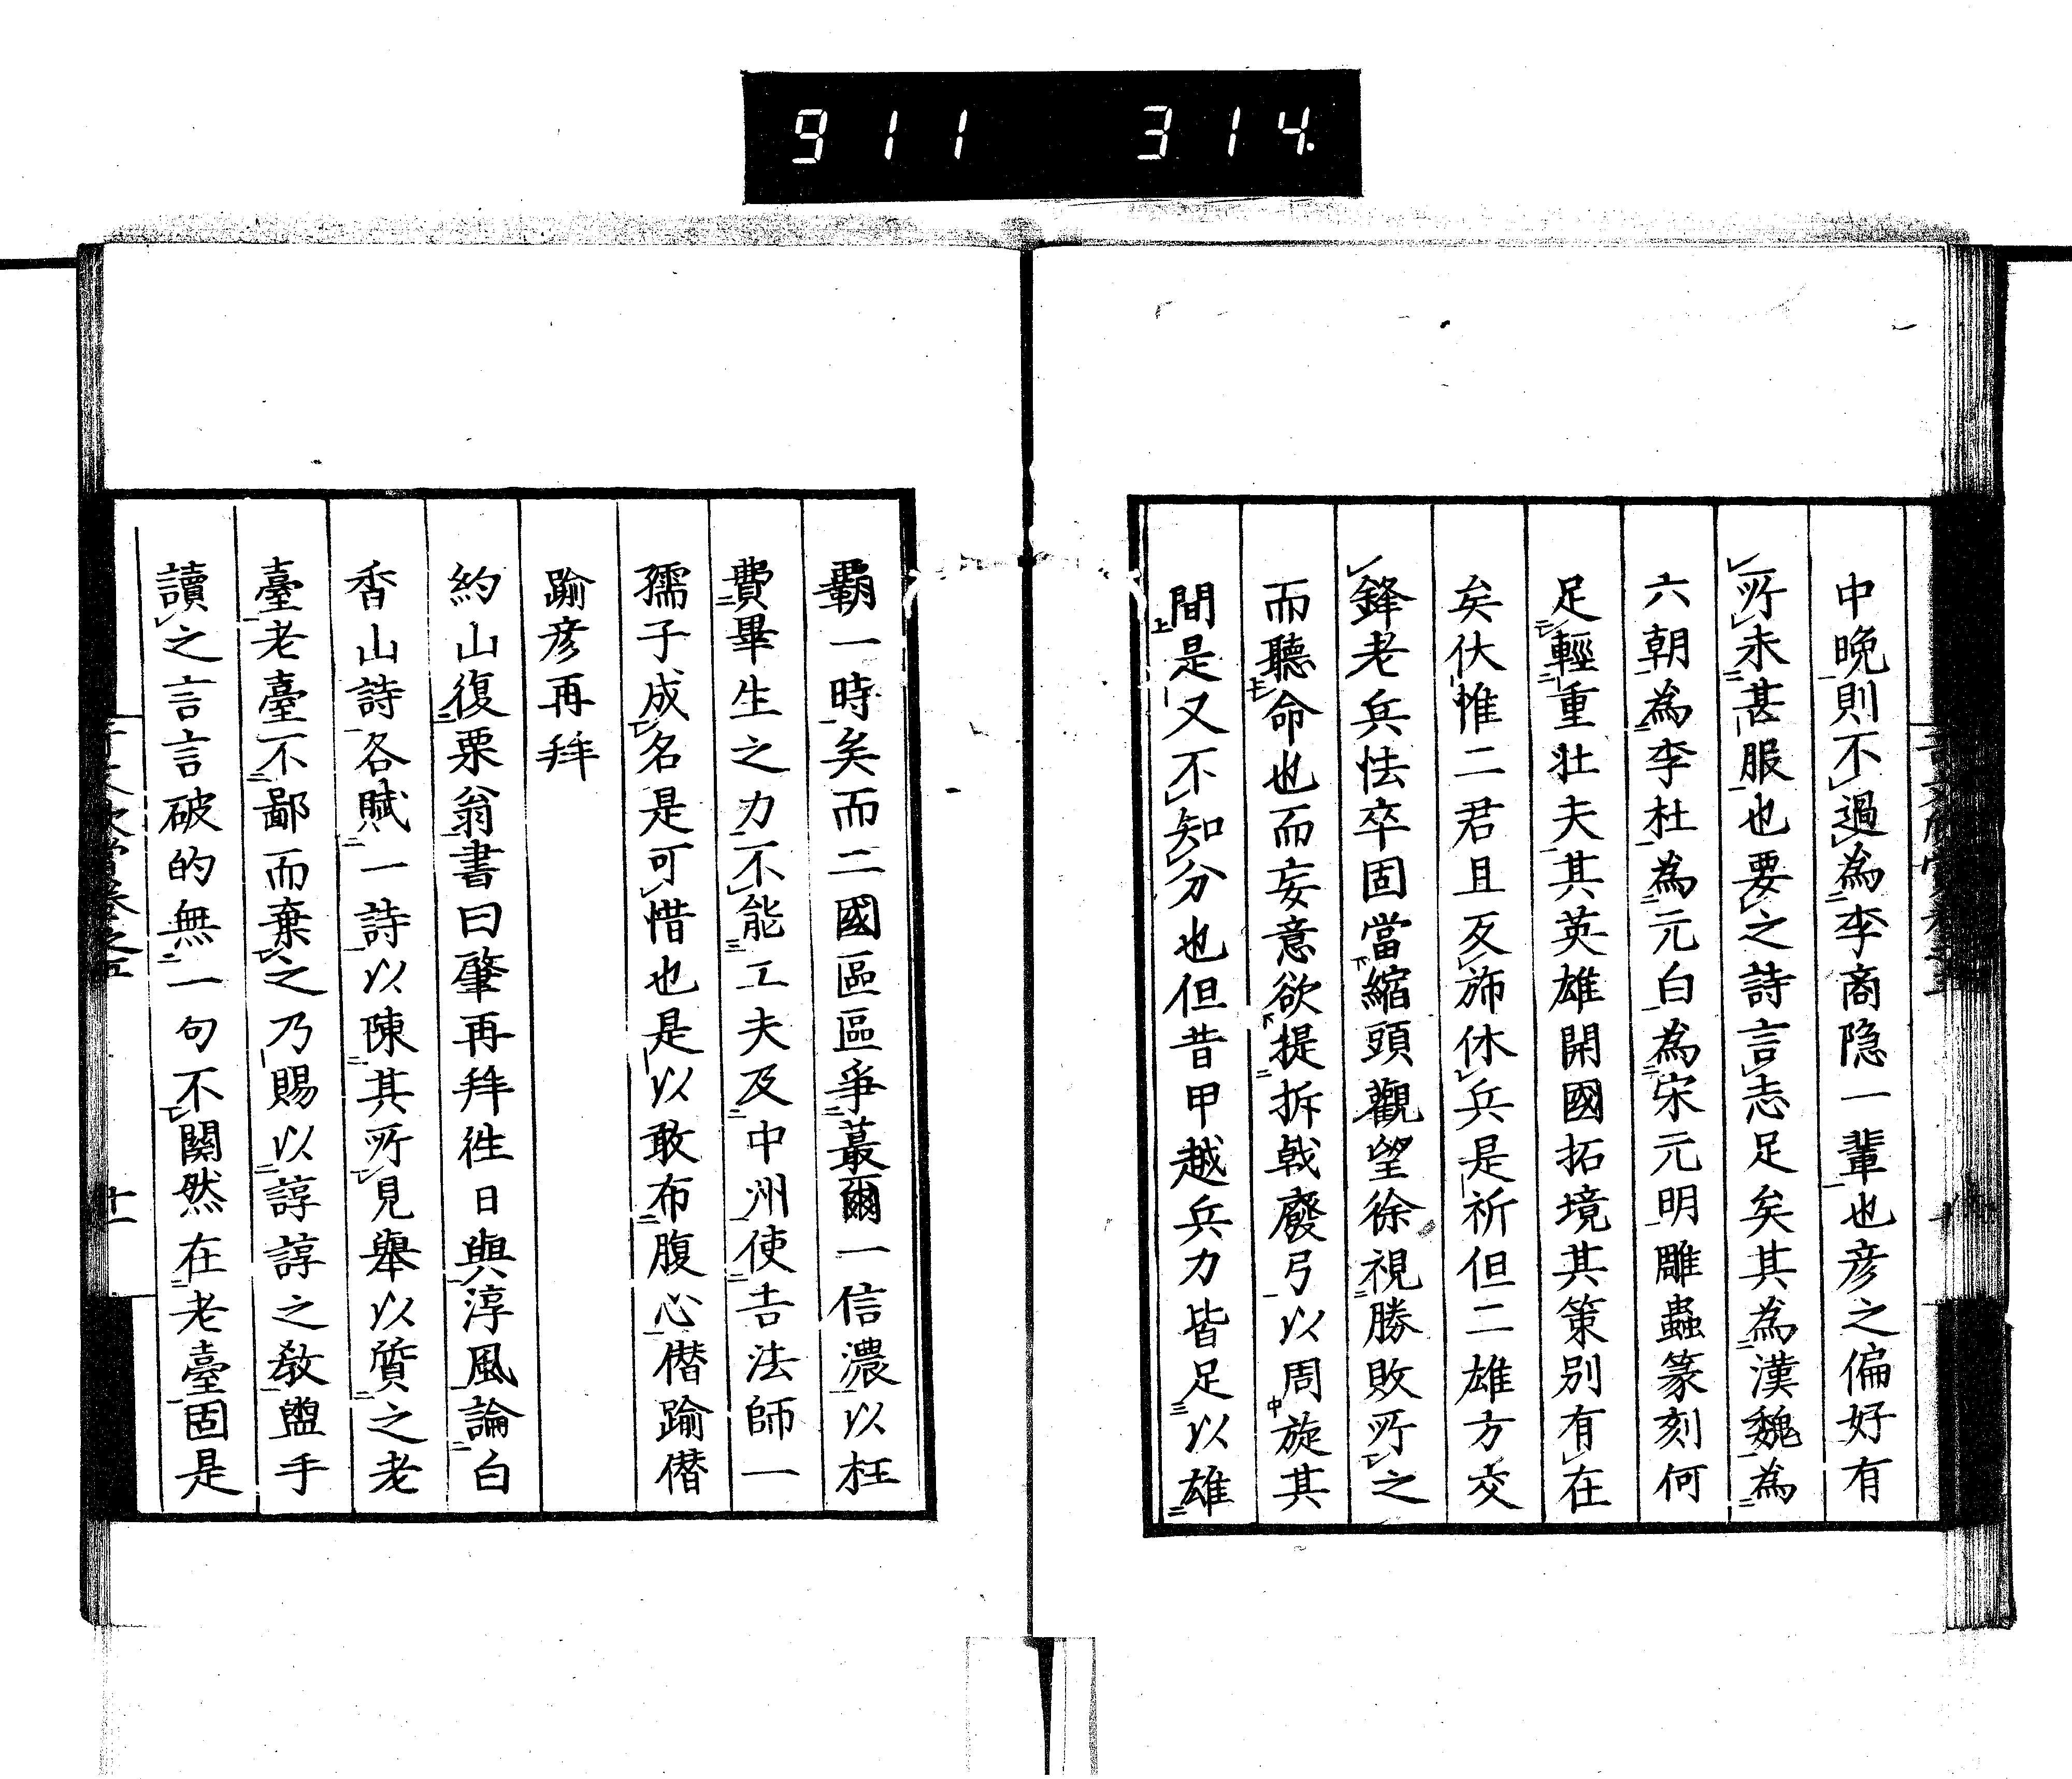 911 314.
中晩則不過為李商隐一輩也彦之偏好有
所未甚服也要之詩言志足矣其為漢魏為
六朝為李杜為元白為宋元明雕蟲篆刻何
足輕重壮夫其英雄開國拓境其策別有在
矣伏惟二君且亥斾休兵是祈但二雄方交
鋒老兵怯卒固當縮頭觀望徐視勝敗所之
而聽命也而妄意欲提拆戟廢弓以周旋其
間是又不知分也但昔甲越兵力皆足以雄
覇一時矣而二國區區爭蕞爾一信濃以枉
費畢生之力不能工夫及中州使吉法師一
孺子成名是可惜也是以敢布腹心僭踰僭
踰彦再拜
約山復栗翁書曰肇再拜徃日與淳風論白
香山詩各賦一詩以陳其所見舉以質之老
臺老臺不鄙而棄之乃賜以諄諄之教盥手
讀之言言破的無一句不關然在老臺固是
卷之五
十一